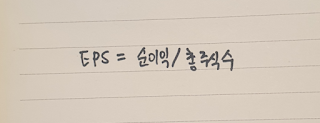 EPS = 순이익/총주식수